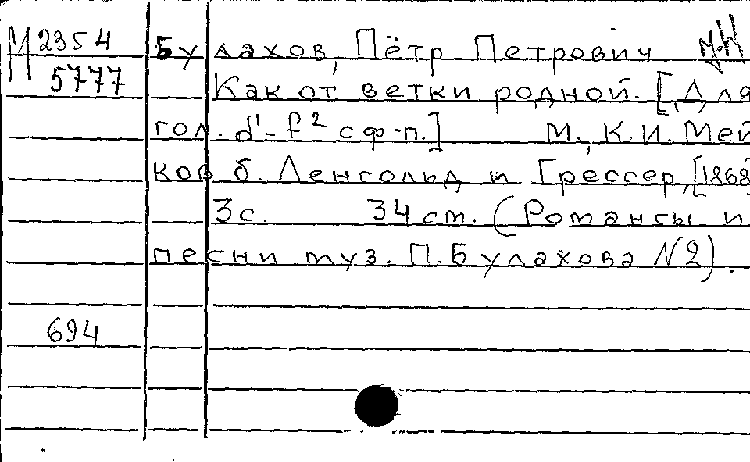 М 2354 Булахов, Пётр Петрович
5777 Как от ветки родной. [Для
гол. d'-f² с ф-п.] М., К.И. Мей
ков б. Ленгольд и Грессер, [1868]
3 с. 34 см. (Романсы и
песни муз. П. Булахова №2).
694